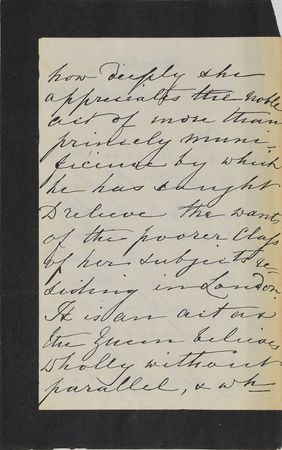 how deeply she
appreciates the noble
act of more than
princely muni-
ficence by which
he has sought
to relieve the wants
of the poorer class
of her subjects re-
siding in London.
It is an act as
the Queen believes
wholly without
parallel, & wh